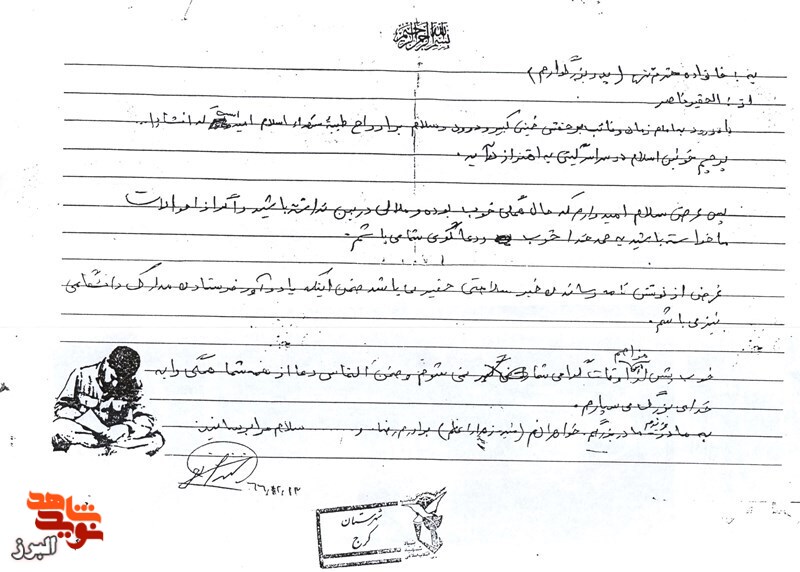 بسم الله الرحمن الرحیم
به: خانواده محترم تنها (پدر بزرگوارم)
از: الحقیر ناصر
با درود به امام زمان و نائب بر حقش خمینی کبیر و درود و سلام بر ارواح طیبۀ شهداء اسلام امید است که انشاءا...
پرچم خونین اسلام در سراسر گیتی به اهتزاز درآید.
پس عرض سلام امیدوارم که حال همگی خوب بوده و ملالی در بین نداشته باشید و اگر از احوالات
ما خواسته باشید به حمد خدا خوب و دعاگوی شما می باشم.
غرض از نوشتن نامه رساندن خبر سلامتی حقیر می باشد ضمن اینکه یادآور فرستادن مدارک دانشگاهی
نیز می باشم.
خوب بیش از این مزاحم اوقات گرامی شما نمی شوم و ضمن التماس دعا از همه شما همگی را به
خدای بزرگ می سپارم.
به مادر عزیزم مادر بزرگم، خواهرانم برادرم رضا و ....... سلام مرا برسانید.
۶۶،۱۲،۱۳
شهرستان
کرج
نوید شاهد
البرز